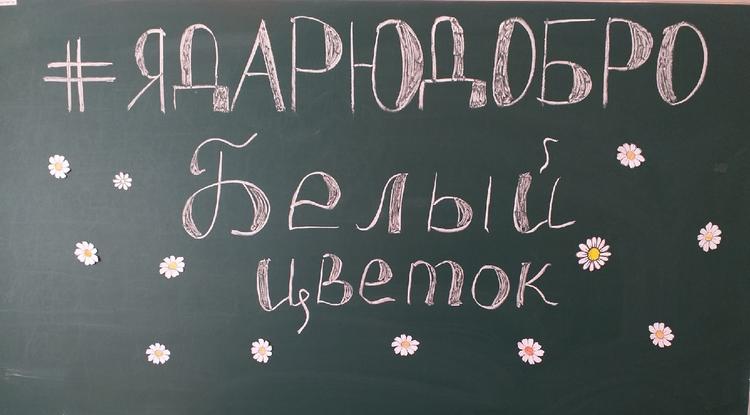 #ЯДАРЮДОБРО
Белый
цветок